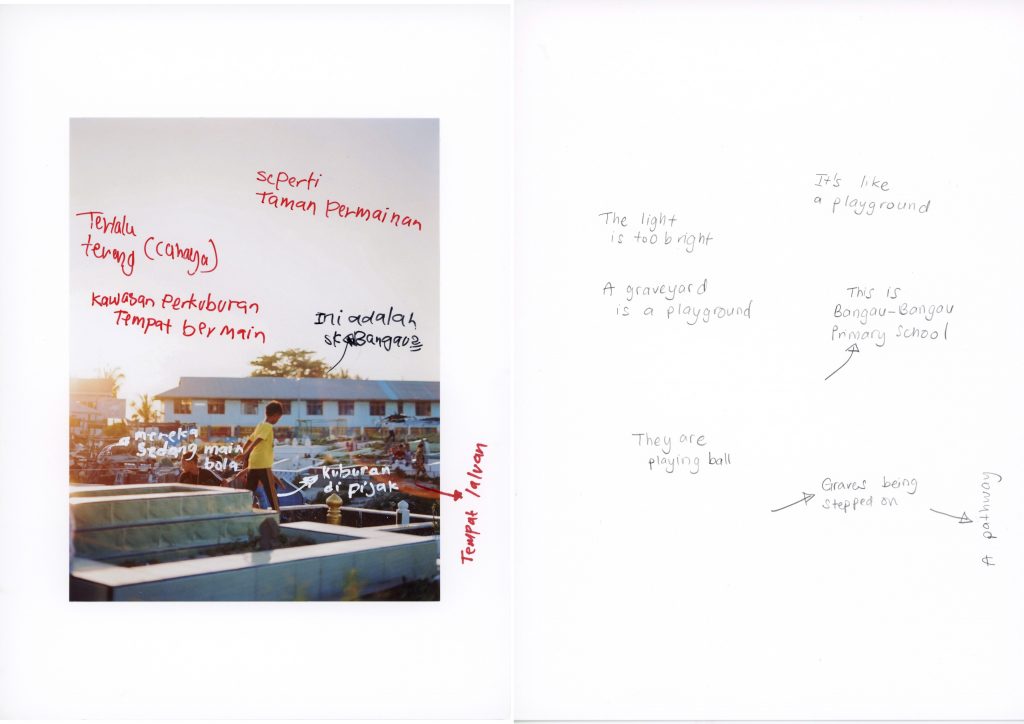 seperti
Taman Permainan
Terlalu
terang (cahaya)
Kawasan Perkuburan
Tempat bermain
Ini adalah
sk Bangau2
mereka
sedang main
bola
Kuburan
di pijak
Tempat laluan
It's like
a playground
The light
is too bright
A graveyard
is a playground
This is
Bangau-Bangau
Primary School
They are
playing ball
Graves being
stepped on
A pathway